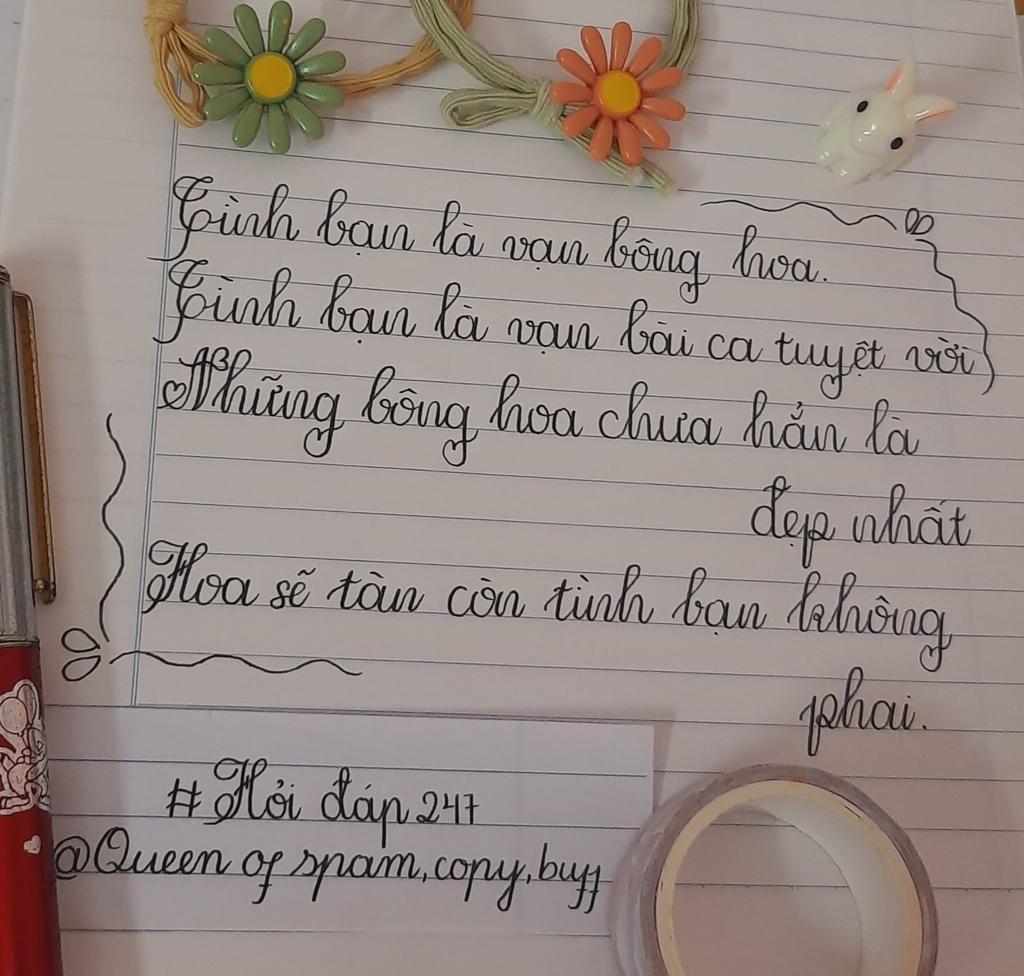 Tình bạn là vạn bông hoa.
Tình bạn là vạn bài ca tuyệt vời
Những bông hoa chưa hẳn là
đẹp nhất
Hoa sẽ tàn còn tình bạn không
phai.
#Hỏi đáp 247
@Queen of spam, copy, buff